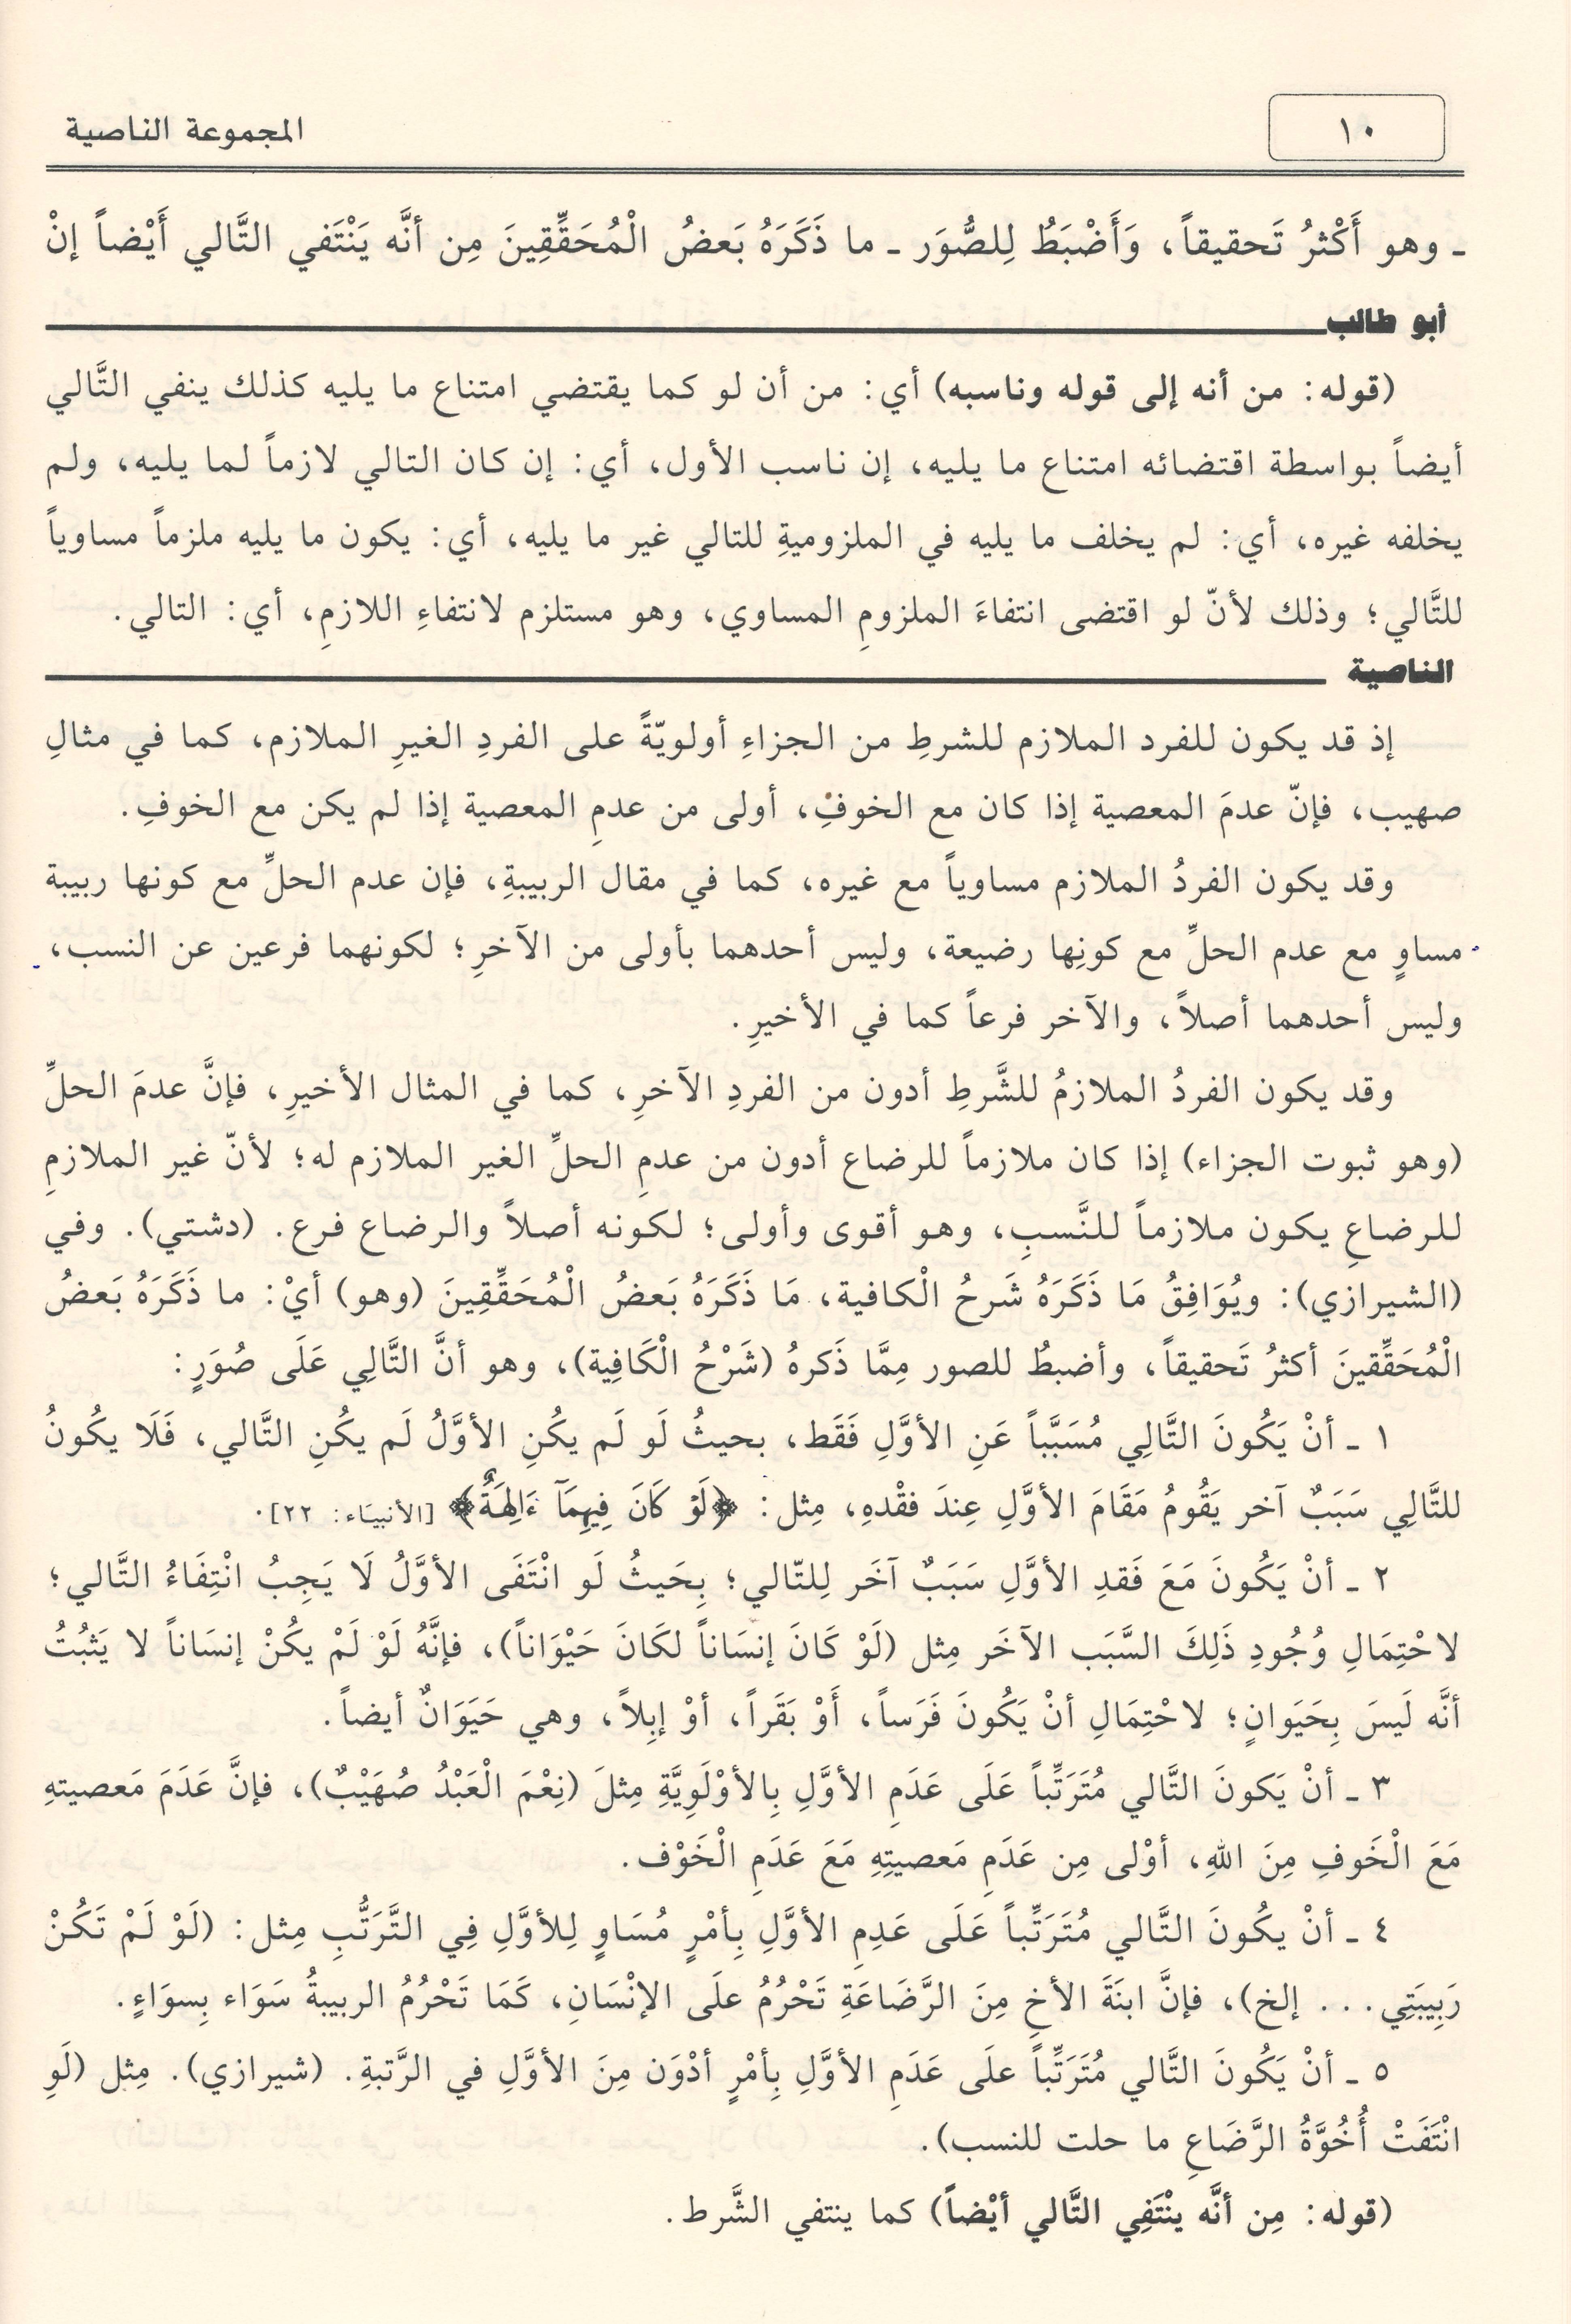 ١٠
المجموعة الناصية
ـ وهو أَكْثرُ تَحقيقاً، وَأَضْبَطُ لِلصُّوَر ـ ما ذَكَرَهُ بَعضُ الْمُحَقِّقِينَ مِن أنَّه يَنْتَفي التَّالي أَيْضاً إنْ
أبو طالب
(قوله: من أنه إلى قوله وناسبه) أي: من أن لو كما يقتضي امتناع ما يليه كذلك ينفي التَّالي
أيضاً بواسطة اقتضائه امتناع ما يليه، إن ناسب الأول، أي: إن كان التالي لازماً لما يليه، ولم
يخلفه غيره، أي: لم يخلف ما يليه في الملزوميةِ للتالي غير ما يليه، أي: يكون ما يليه ملزماً مساوياً
للتَّالي؛ وذلك لأنّ لو اقتضى انتفاءَ الملزومِ المساوي، وهو مستلزم لانتفاءِ اللازمِ، أي: التالي.
الناصية
إذ قد يكون للفرد الملازم للشرطِ من الجزاءِ أولويّةً على الفردِ الغيرِ الملازم، كما في مثالِ
صهيب، فإنّ عدمَ المعصية إذا كان مع الخوفِ، أولى من عدمِ المعصية إذا لم يكن مع الخوفِ.
وقد يكون الفردُ الملازم مساوياً مع غيره، كما في مقال الربيبةِ، فإن عدم الحلِّ مع كونها ربيبة
مساوٍ مع عدم الحلِّ مع كونِها رضيعة، وليس أحدهما بأولى من الآخرِ؛ لكونهما فرعين عن النسب،
وليس أحدهما أصلاً، والآخر فرعاً كما في الأخيرِ.
وقد يكون الفردُ الملازمُ للشَّرطِ أدون من الفردِ الآخرِ، كما في المثال الأخيرِ، فإنَّ عدمَ الحلِّ
(وهو ثبوت الجزاء) إذا كان ملازماً للرضاع أدون من عدمِ الحلِّ الغير الملازم له؛ لأنّ غير الملازمِ
للرضاعِ يكون ملازماً للنَّسبِ، وهو أقوى وأولى؛ لكونه أصلاً والرضاع فرع. (دشتي). وفي
(الشيرازي): ويُوَافِقُ مَا ذَكَرَهُ شَرحُ الْكافية، مَا ذَكَرَهُ بَعضُ الْمُحَقِّقِينَ (وهو) أيْ: ما ذَكَرَهُ بَعضُ
الْمُحَقِّقينَ أكثرُ تَحقيقاً، وأضبطُ للصور مِمَّا ذَكرهُ (شَرْحُ الْكَافِية)، وهو أنَّ التَّالِي عَلَى صُوَرٍ:
١ ـ أنْ يَكُونَ التَّالِي مُسَبَّباً عَنِ الأوَّلِ فَقَط، بحيثُ لَو لَم يكُنِ الأوَّلُ لَم يكُنِ التَّالي، فَلَا يكُونُ
للتَّالِي سَبَبٌ آخر يَقُومُ مَقَامَ الأوَّلِ عِندَ فقْدهِ، مِثل: ﴿لَوْ كَانَ فِيهِمَآ ءَالِهَةٌ﴾ [الأنبيَاء: ٢٢].
٢ ـ أنْ يَكُونَ مَعَ فَقدِ الأوَّلِ سَبَبٌ آخَر لِلتّالي؛ بِحَيثُ لَو انْتَفَى الأوَّلُ لَا يَجِبُ انْتِفَاءُ التَّالي؛
لاحْتِمَالِ وُجُودِ ذَلِكَ السَّبَب الآخَر مِثل (لَوْ كَانَ إنسَاناً لكَانَ حَيْوَاناً)، فإنَّهُ لَوْ لَمْ يكُنْ إنسَاناً لا يَثبُتُ
أنَّه لَيسَ بِحَيَوانٍ؛ لاحْتِمَالِ أنْ يَكُونَ فَرَساً، أَوْ بَقَراً، أوْ إبِلاً، وهي حَيَوَانٌ أيضاً.
٣ ـ أنْ يَكونَ التَّالي مُتَرَتِّباً عَلَى عَدَمِ الأوَّلِ بِالأوْلَوِيَّةِ مِثلَ (نِعْمَ الْعَبْدُ صُهَيْبٌ)، فإنَّ عَدَمَ مَعصيتهِ
مَعَ الْخَوفِ مِنَ اللهِ، أوْلى مِن عَدَمِ مَعصيتِهِ مَعَ عَدَمِ الْخَوْف.
٤ ـ أنْ يكُونَ التَّالي مُتَرَتِّباً عَلَى عَدِمِ الأوَّلِ بِأمْرٍ مُسَاوٍ لِلأوَّلِ فِي التَّرَتُّبِ مِثل: (لَوْ لَمْ تَكُنْ
رَبِيبَتِي... إلخ)، فإنَّ ابنَةَ الأخِ مِنَ الرَّضَاعَةِ تَحْرُمُ علَى الإنْسَانِ، كَمَا تَحْرُمُ الربيبةُ سَوَاء بِسوَاءٍ.
٥ ـ أنْ يَكُونَ التَّالي مُتَرَتِّباً علَى عَدَمِ الأوَّلِ بِأمْرٍ أدْوَن مِنَ الأوَّلِ في الرَّتبةِ. (شيرازي). مِثل (لَوِ
انْتَفَتْ أُخُوَّةُ الرَّضَاعِ ما حلت للنسب).
(قوله: مِن أنَّه ينْتَفِي التَّالي أيْضاً) كما ينتفي الشَّرط.